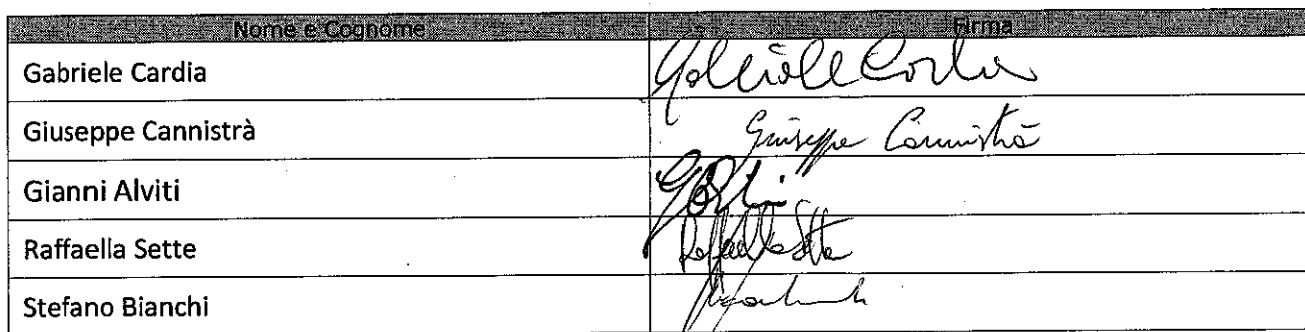 Nome e Cognome Firma
Gabriele Cardia Gabriele Cardia
Giuseppe Cannistrà Giuseppe Cannistrà
Gianni Alviti
Raffaella Sette Raffaella Sette
Stefano Bianchi